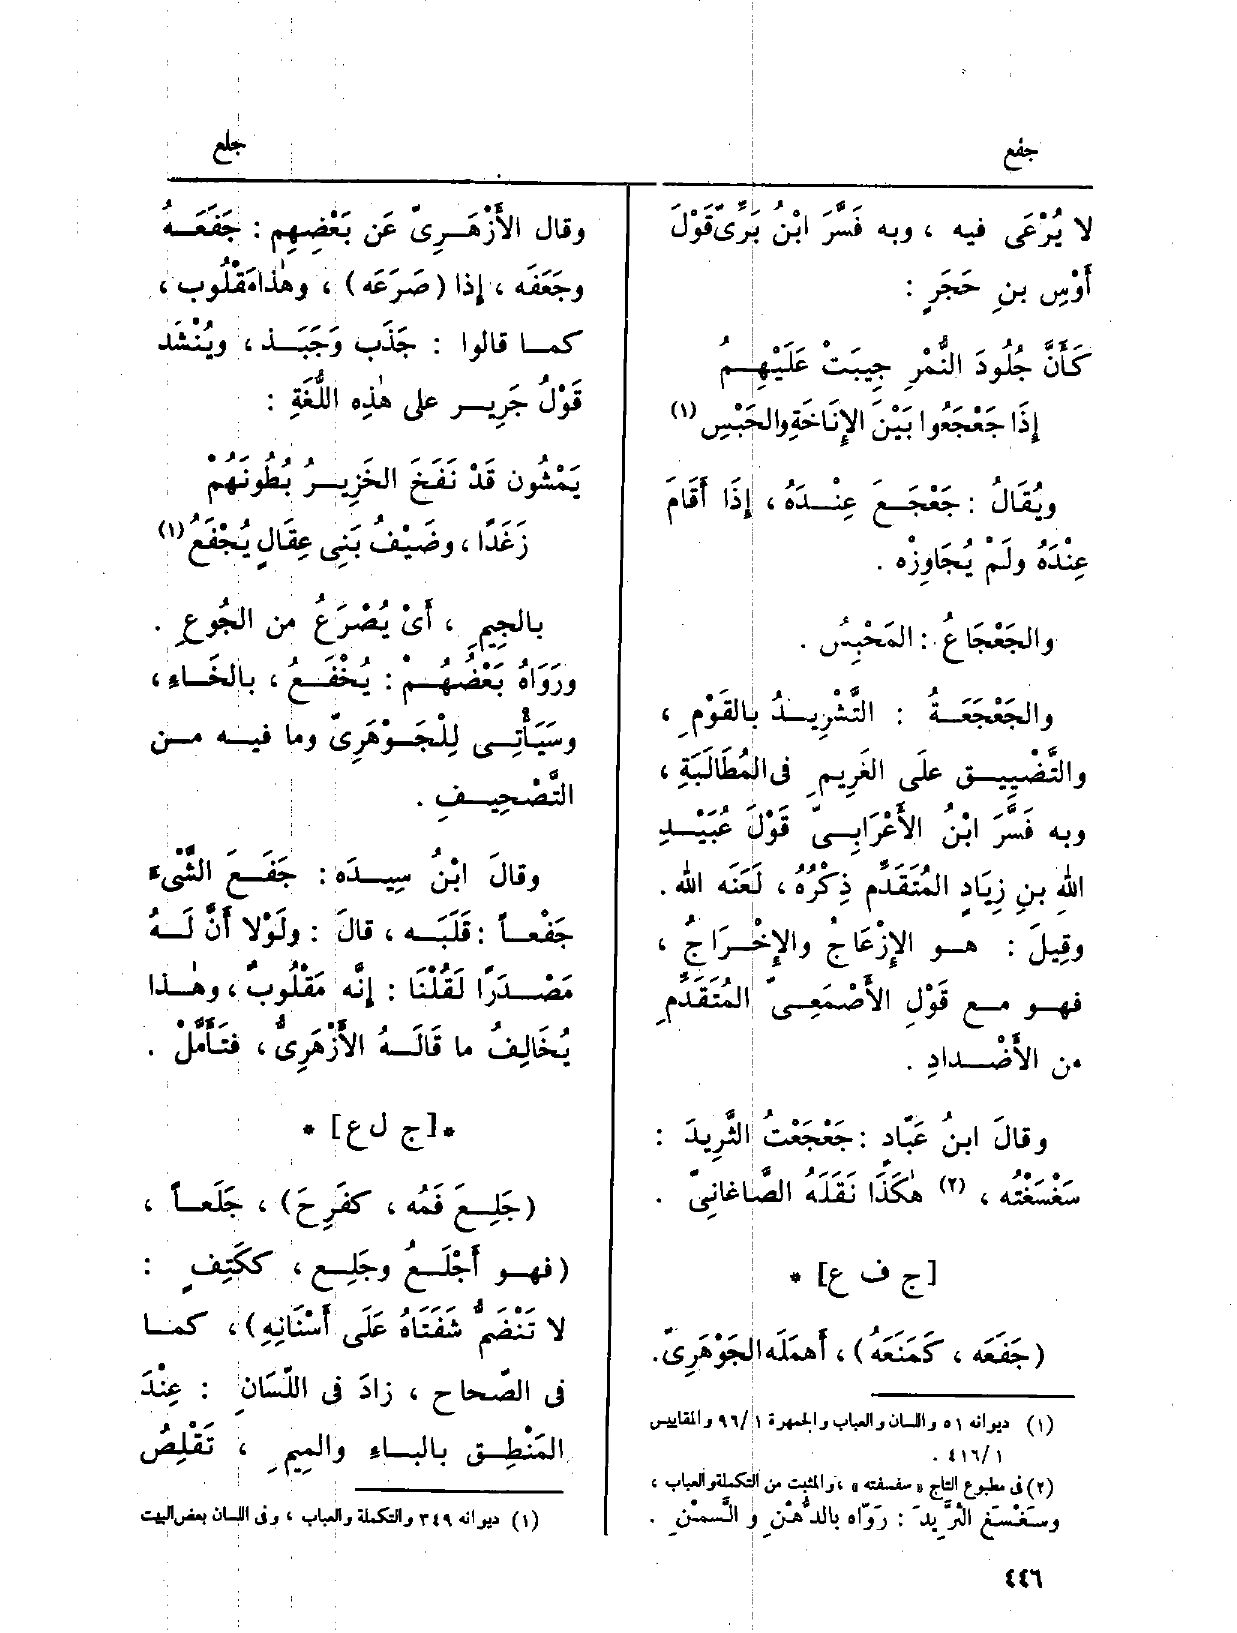 جفع
جلع
لا يُرْعَى فيه ، وبه فَسَّرَ ابْنُ بَرِّىّ قَوْلَ
أَوْسِ بنِ حَجَرٍ :
كَأَنَّ جُلُودَ النُّمْرِ جِيبَتْ عَلَيْهِمُ
إِذَا جَعْجَعُوا بَيْنَ الإِنَاخَةِ والحَبْسِ (١)
ويُقَالُ : جَعْجَعَ عِنْدَهُ ، إِذَا أَقَامَ
عِنْدَهُ ولَمْ يُجَاوِزْه .
والجَعْجَاعُ : المَحْبِسُ .
والجَعْجَعَةُ : التَّشْرِيدُ بالقَوْمِ ،
والتَّضْيِيق علَى الغَرِيمِ فى المُطَالَبَةِ ،
وبه فَسَّرَ ابْنُ الأَعْرَابِىّ قَوْلَ عُبَيْدِ
اللهِ بنِ زِيَادٍ المُتَقَدِّم ذِكْرُهُ ، لَعَنَه الله .
وقِيلَ : هو الإِزْعَاجُ والإِخْرَاجُ ،
فهو مع قَوْلِ الأَصْمَعِىّ المُتَقَدِّمِ
من الأَضْدادِ .
وقالَ ابنُ عَبّادٍ : جَعْجَعْتُ الثَّرِيدَ :
سَغْسَغْتُه ، (٢) هٰكَذَا نَقَلَهُ الصّاغانِىّ .
[ج ف ع] *
(جَفَعَه ، كَمَنَعَهُ) ، أَهمَلَه الجَوْهَرِىّ.
(١) ديوانه ٥١ واللسان والعباب والجمهرة ٩٦/١ والمقاييس
٤١٦/١ .
(٢) فى مطبوع التاج « سفسفته » ، والمثبت من التكملة والعباب ،
وسَغْسَغ الثَّرِيدَ : رَوّاه بالدُّهْنِ و السَّمْنِ .
وقال الأَزْهَرِىّ عَن بَعْضِهِم : جَفَعَهُ
وجَعَفَه ، إذا (صَرَعَه) ، وهٰذا مَقْلُوب ،
كما قالوا : جَذَب وَجَبَذ ، ويُنْشَد
قَوْلُ جَرِير على هٰذِه اللُّغَةِ :
يَمْشُون قَدْ نَفَخَ الخَزِيرُ بُطُونَهُمْ
زَغَدًا ، وضَيْفُ بَنِى عِقَالٍ يُجْفَعُ (١)
بالجِيمِ ، أَىْ يُصْرَعُ من الجُوعِ .
ورَوَاهُ بَعْضُهُمْ : يُخْفَعُ ، بالخَاءِ ،
وسَيَأْتِى لِلْجَوْهَرِىّ وما فيه من
التَّصْحِيفِ .
وقالَ ابْنُ سِيدَه : جَفَعَ الشَّىْءَ
جَفْعاً : قَلَبَه ، قالَ : ولَوْلا أَنَّ لَهُ
مَصْدَرًا لَقُلْنَا : إِنَّه مَقْلُوبٌ ، وهٰذا
يُخَالِفُ ما قَالَهُ الأَزْهَرِىُّ ، فتَأَمَّلْ .
*[ج ل ع] *
(جَلِعَ فَمُه ، كفَرِحَ) ، جَلَعاً ،
(فهو أَجْلَعُ وجَلِع ، ككَتِفٍ :
لا تَنْضَمُّ شَفَتَاهُ عَلَى أَسْنَانِهِ) ، كما
فى الصّحاح ، زادَ فى اللِّسَانِ : عِنْدَ
المَنْطِق بالباء والمِيمِ ، تَقْلِصُ
(١) ديوانه ٣٤٩ والتكملة والعباب ، وفى اللسان بعض البيت
٤٤٦